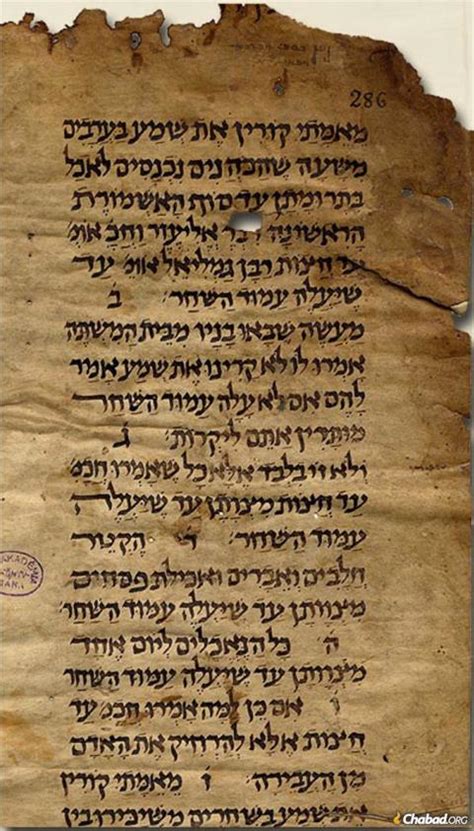 286
מאמתי קורין את שמע בערבים
משעה שהכהנים נכנסים לאכל
בתרומתן עד סוף האשמורת
הראשונה דבר אליעזר וחכ אומ
עד חצות רבן גמליאל אומ עד
שיעלה עמוד השחר ב
מעשה שבאו בניו מבית המשתה
אמרו לו לא קרינו את שמע אמר
להם אם לא עלה עמוד השחר
מותרין אתם לקרות ג
ולא זו בלבד אלא כל שאמרו חכמ
עד חצות מצותן עד שיעלה
עמוד השחר ד הקטר
חלבים ואברים ואכילת פסחים
מצוותן עד שיעלה עמוד השחר
ה כל הנאכלים ליום אחד
מצוותן עד שיעלה עמוד השחר
ו אם כן למה אמרו חכמ עד
חצות אלא להרחיק את האדם
מן העבירה ז מאמתי קורין
את שמע בשחרים משיכירו בין
Chabad.ORG